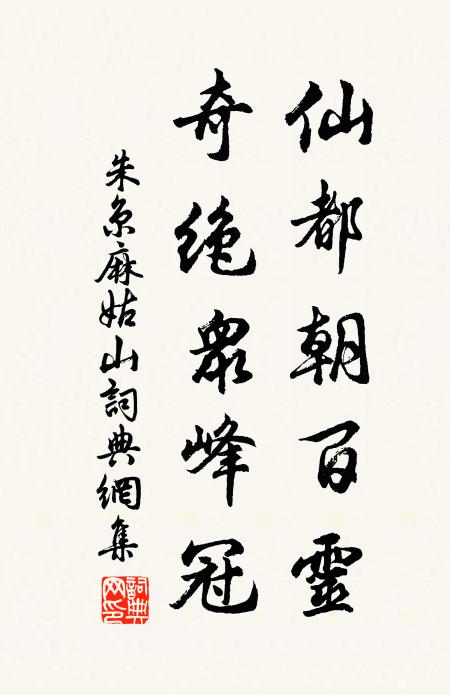 仙都朝百靈
奇絶衆峰冠
朱京麻姑山詞典網集
詞典網印